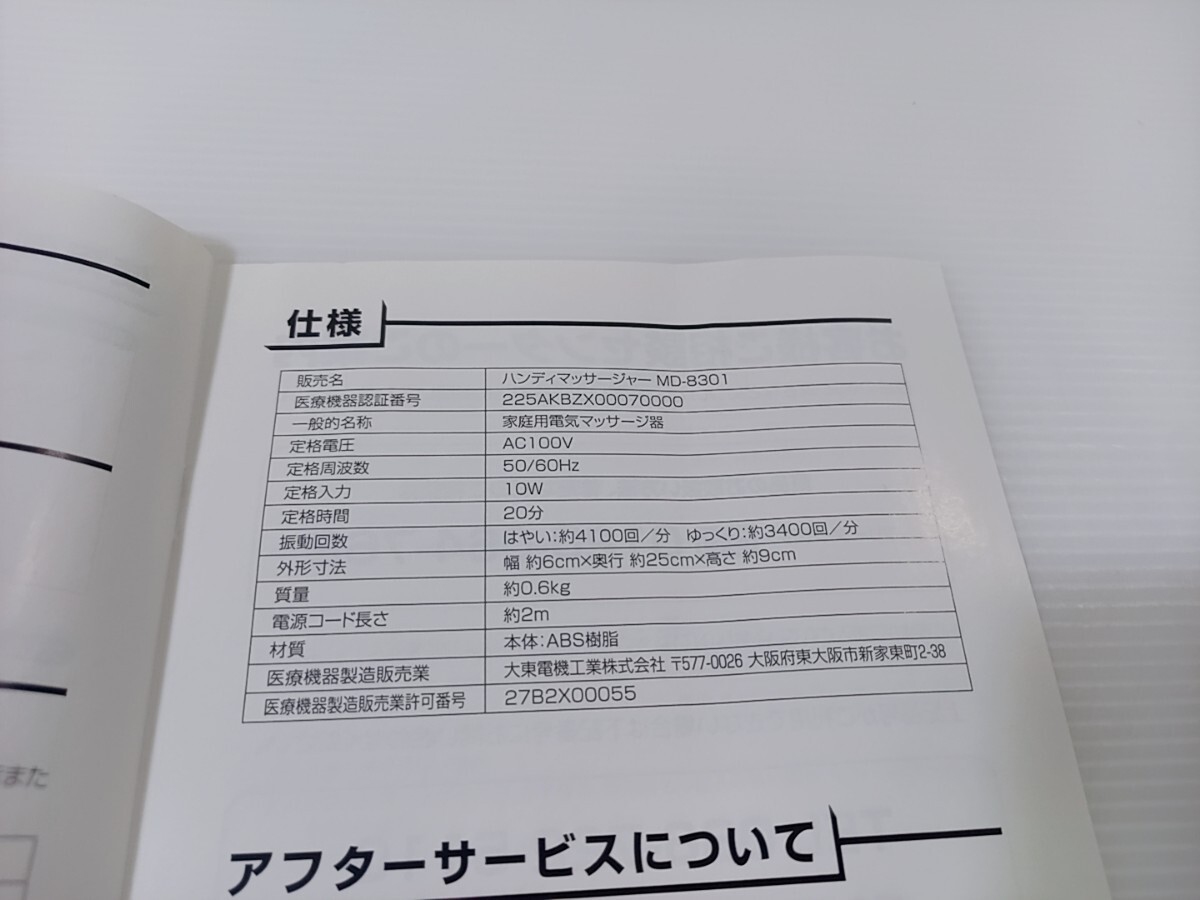 仕様
販売名 ハンディマッサージャー MD-8301
医療機器認証番号 225AKBZX00070000
一般的名称 家庭用電気マッサージ器
定格電圧 AC100V
定格周波数 50/60Hz
定格入力 10W
定格時間 20分
振動回数 はやい:約4100回/分 ゆっくり:約3400回/分
外形寸法 幅 約6cm×奥行 約25cm×高さ 約9cm
質量 約0.6kg
電源コード長さ 約2m
材質 本体:ABS樹脂
医療機器製造販売業 大東電機工業株式会社 〒577-0026 大阪府東大阪市新家東町2-38
医療機器製造販売業許可番号 27B2X00055
また
アフターサービスについて